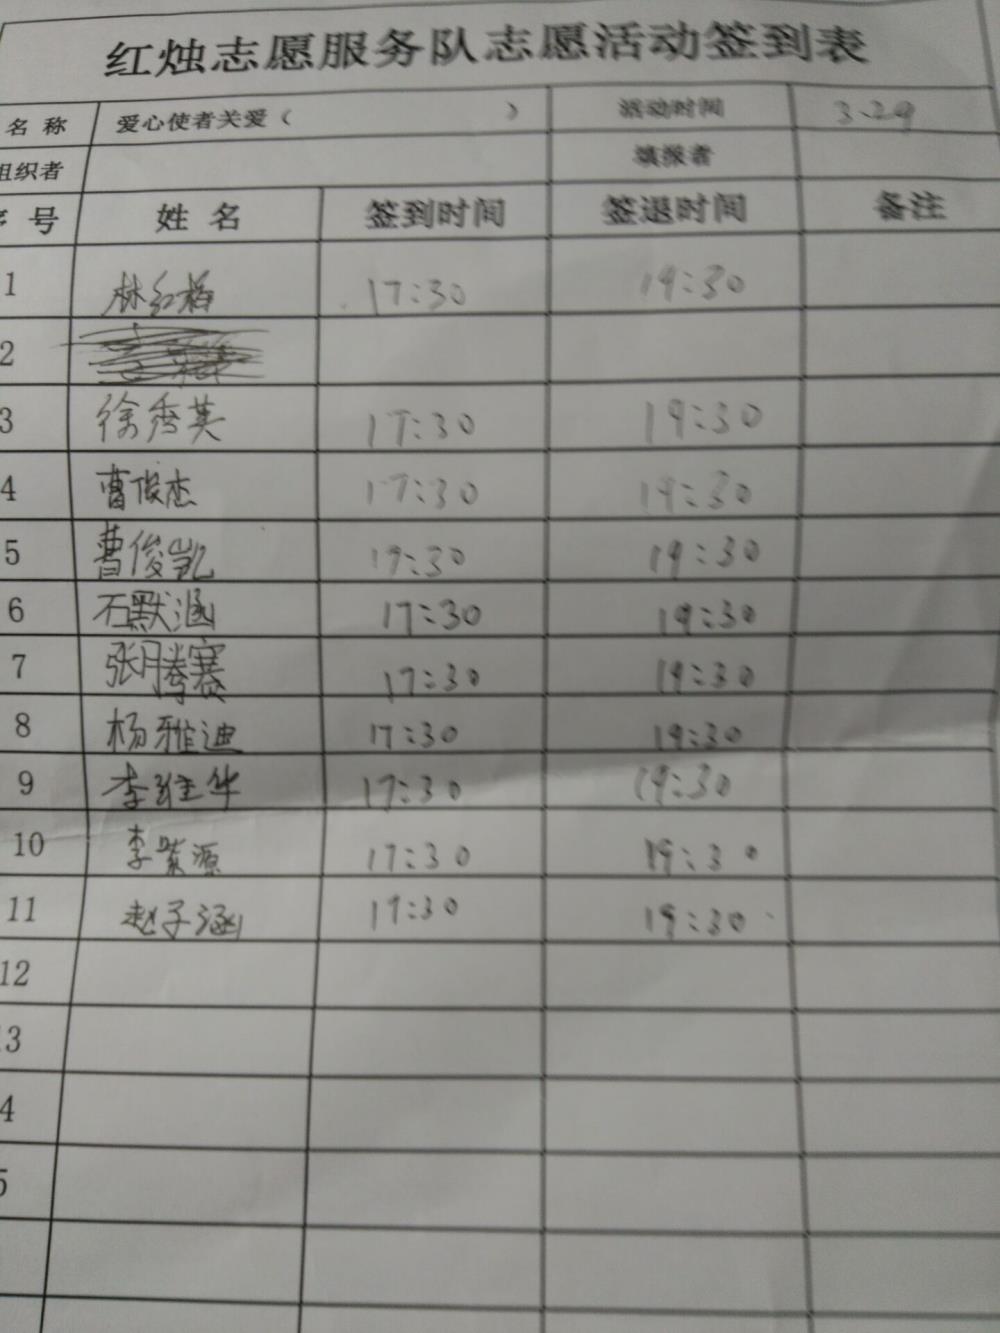 红烛志愿服务队志愿活动签到表
名 称 爱心使者关爱（ ） 活动时间 3.29
组织者 填报者
序 号 姓 名 签到时间 签退时间 备注
1 林红梅 17:30 19:30
2
3 徐秀英 17:30 19:30
4 曹俊杰 17:30 19:30
5 曹俊凯 17:30 19:30
6 石默涵 17:30 19:30
7 张腾骞 17:30 19:30
8 杨雅迪 17:30 19:30
9 李继华 17:30 19:30
10 李紫源 17:30 19:30
11 赵子涵 17:30 19:30
12
13
14
15